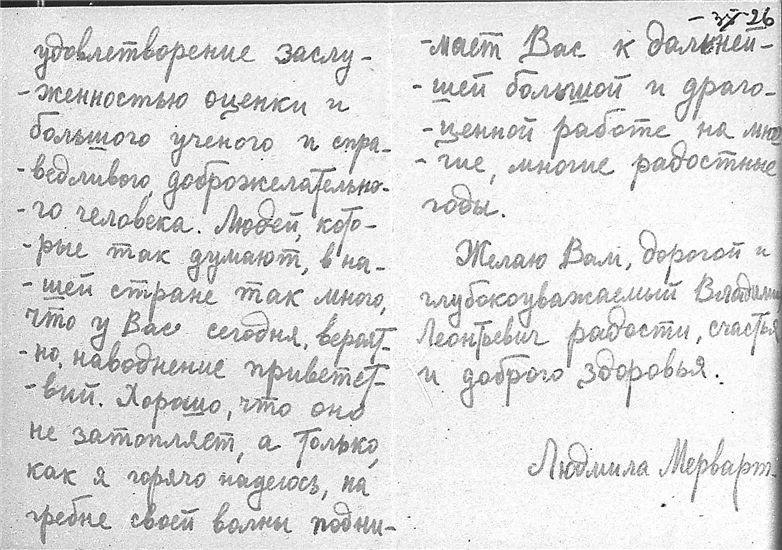 удовлетворение заслу-
-женностью оценки и
большого ученого и спра-
-ведливого, доброжелательно-
-го человека. Людей, кото-
-рые так думают, в на-
-шей стране так много,
что у Вас сегодня, вероят-
-но, наводнение приветст-
-вий. Хорошо, что оно
не затопляет, а только,
как я горячо надеюсь, на
гребне своей волны подни-
-мает Вас к дальней-
-шей большой и драго-
-ценной работе на мно
-гие, многие радостные
годы.
Желаю Вам, дорогой и
глубокоуважаемый Владими
Леонтьевич радости, счастья
и доброго здоровья.
Людмила Мерварт.